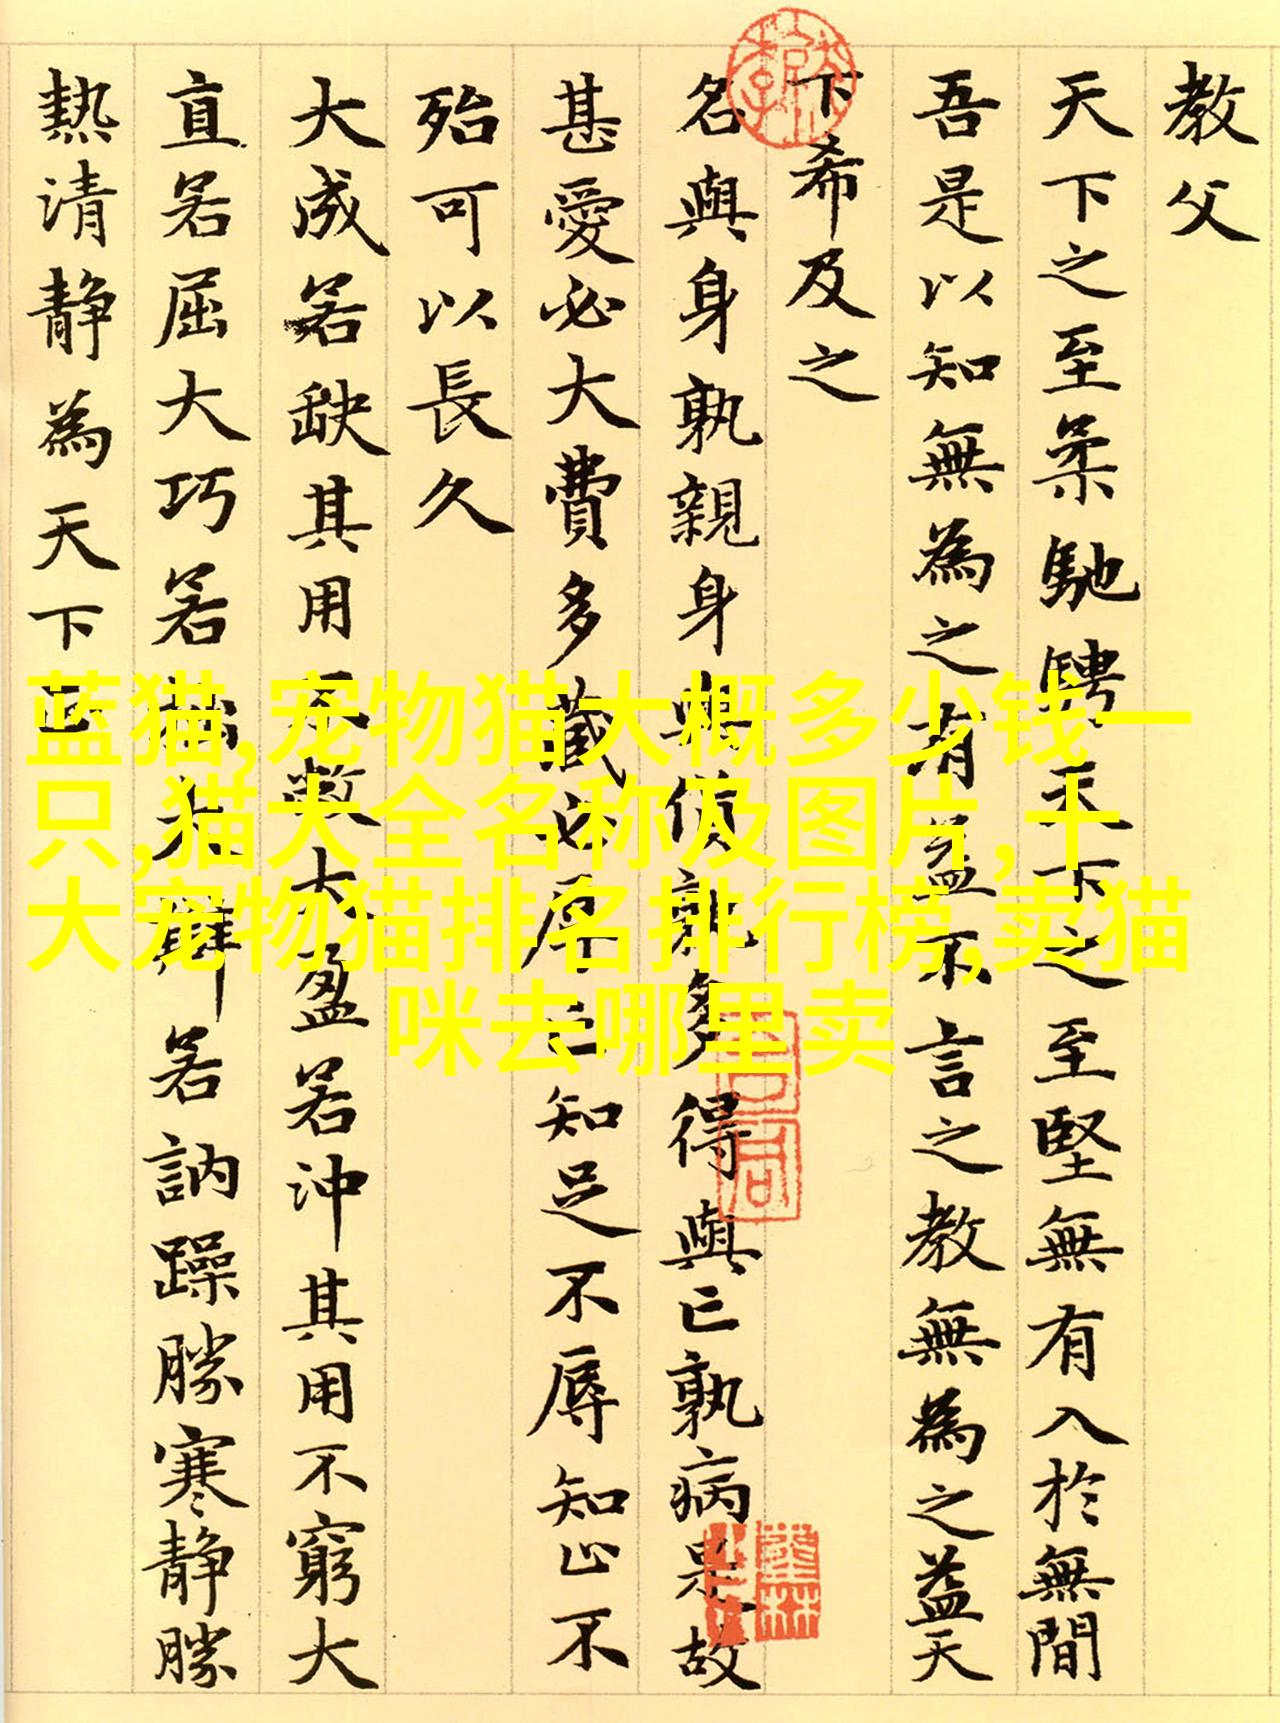 教父
天下之至柔馳騁天下之至堅無有入於無間
吾是以知無為之有益不言之教無為之益天
下希及之
名與身孰親身與貨孰多得與亡孰病是故
甚愛必大費多藏必厚亡知足不辱知止不
殆可以長久
大成若缺其用不敝大盈若沖其用不窮大
直若屈大巧若拙大辯若訥躁勝寒靜勝
熱清靜為天下正
蓝猫,宠物猫大概多少钱一
只,猫大全名称及图片,十
大宠物猫排名排行榜,卖猫
咪去哪里卖